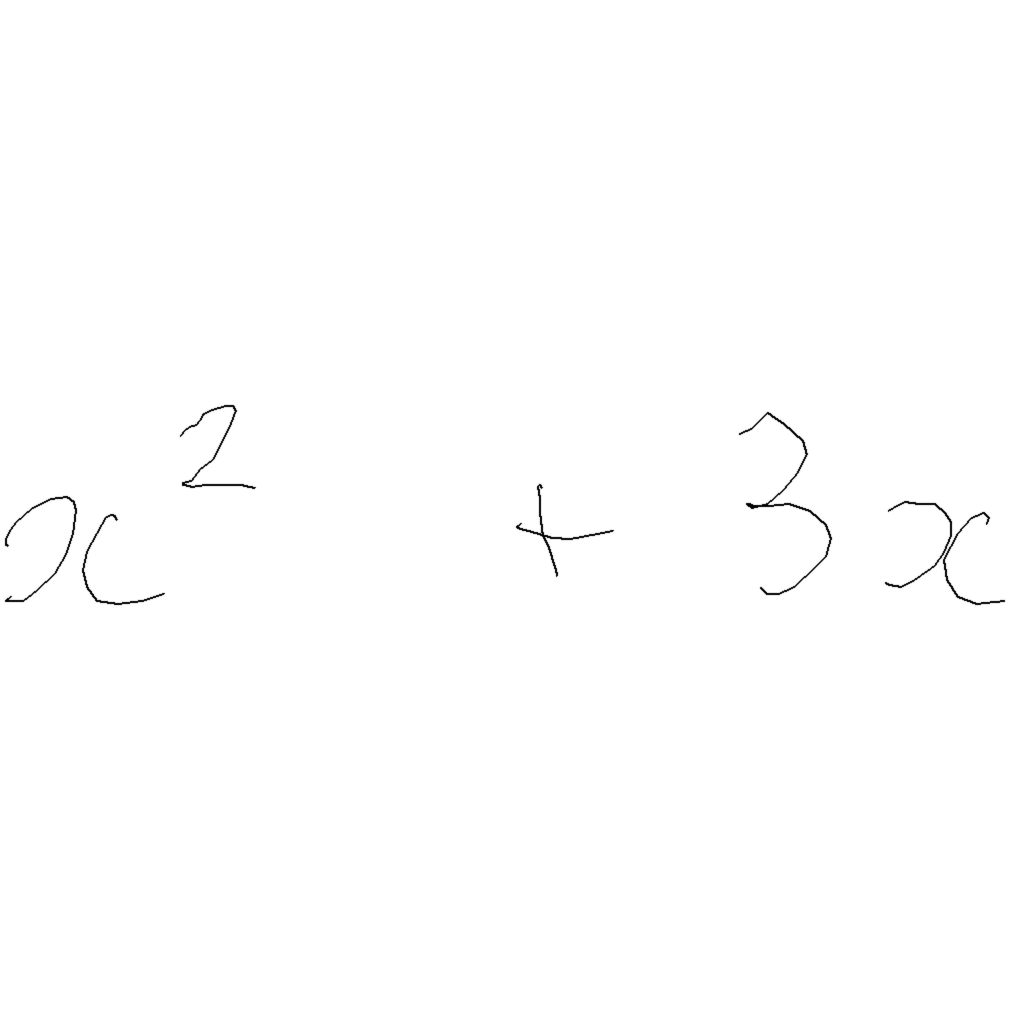 x² + 3x